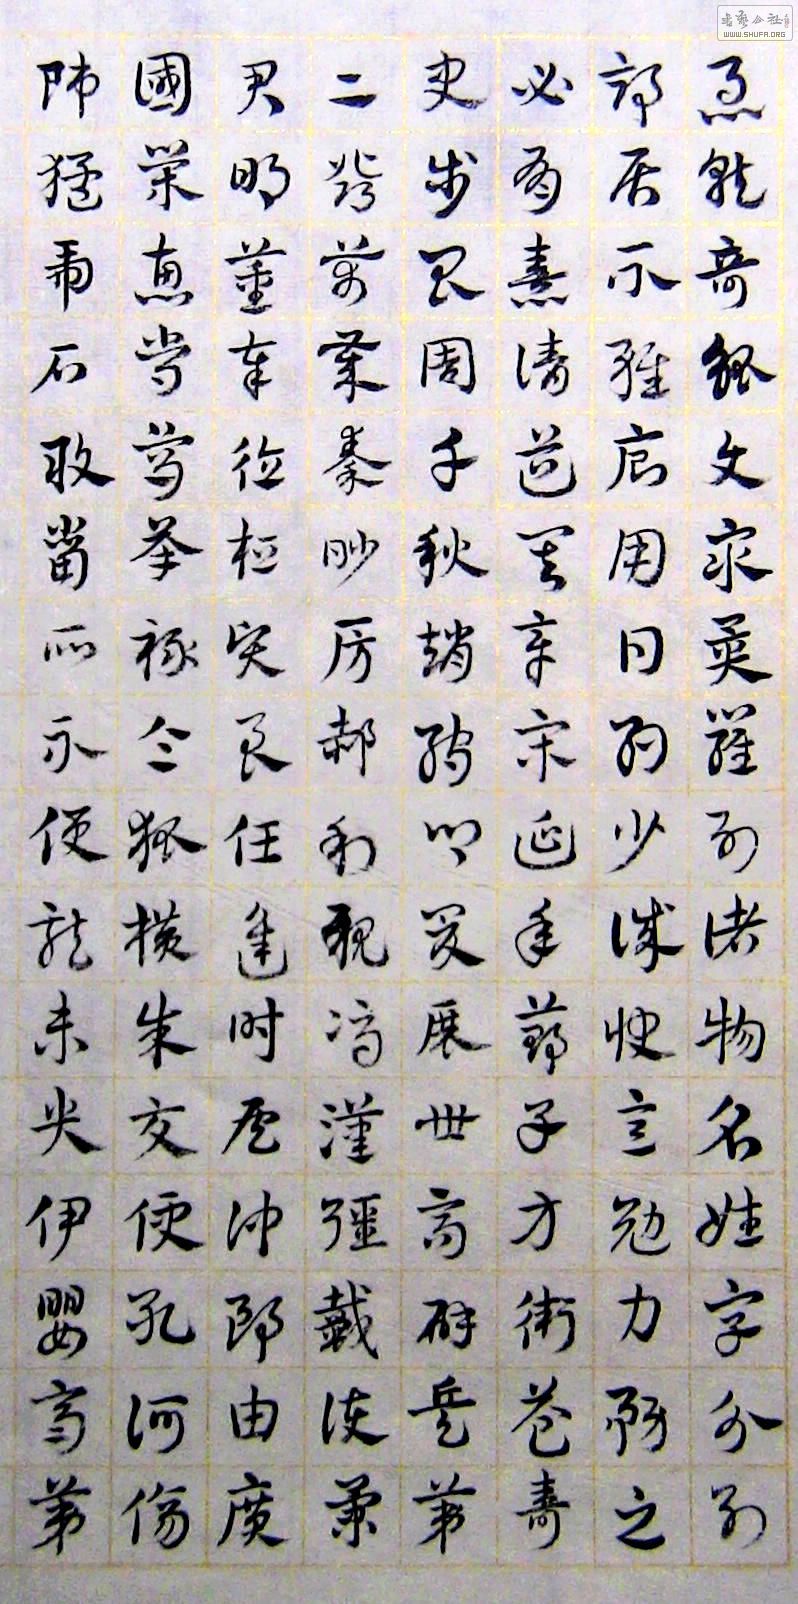 書藝公社
WWW.SHUFA.ORG
急就奇觚與眾異羅列諸物名姓字分別
部居不雜廁用日約少誠快意勉力務之
必有憙請道其章宋延年鄭子方衛益壽
史步昌周千秋趙孺卿爰展世高辟兵第
二鄧萬歲秦眇房郝利親馮漢彊戴護景
君明董奉德桓賢良任逢時侯仲郎由廣
國榮惠常烏承祿令狐橫朱交便孔何傷
師猛虎石敢當所不侵龍未央伊嬰齊第